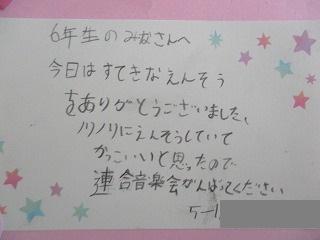 6年生のみなさんへ
今日はすてきなえんそう
をありがとうございました、
ノリノリにえんそうしていて
かっこいいと思ったので
連合音楽会がんばってください
5-1